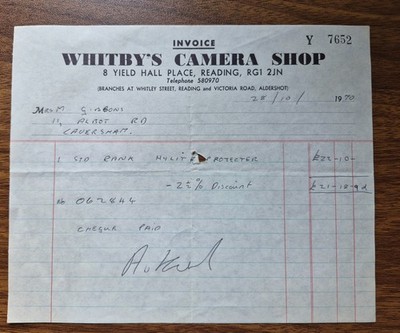 INVOICE
Y 7652
WHITBY'S CAMERA SHOP
8 YIELD HALL PLACE, READING, RG1 2JN
Telephone 580970
(BRANCHES AT WHITLEY STREET, READING and VICTORIA ROAD, ALDERSHOT)
28/10/ 1970
M GIBBONS
11, ALBOT RD
CAVERSHAM.
1 STD RANK PROJECTER £22-10-
- 2½% Discount £21-18-9d
No 062844
CHEQUE PAID